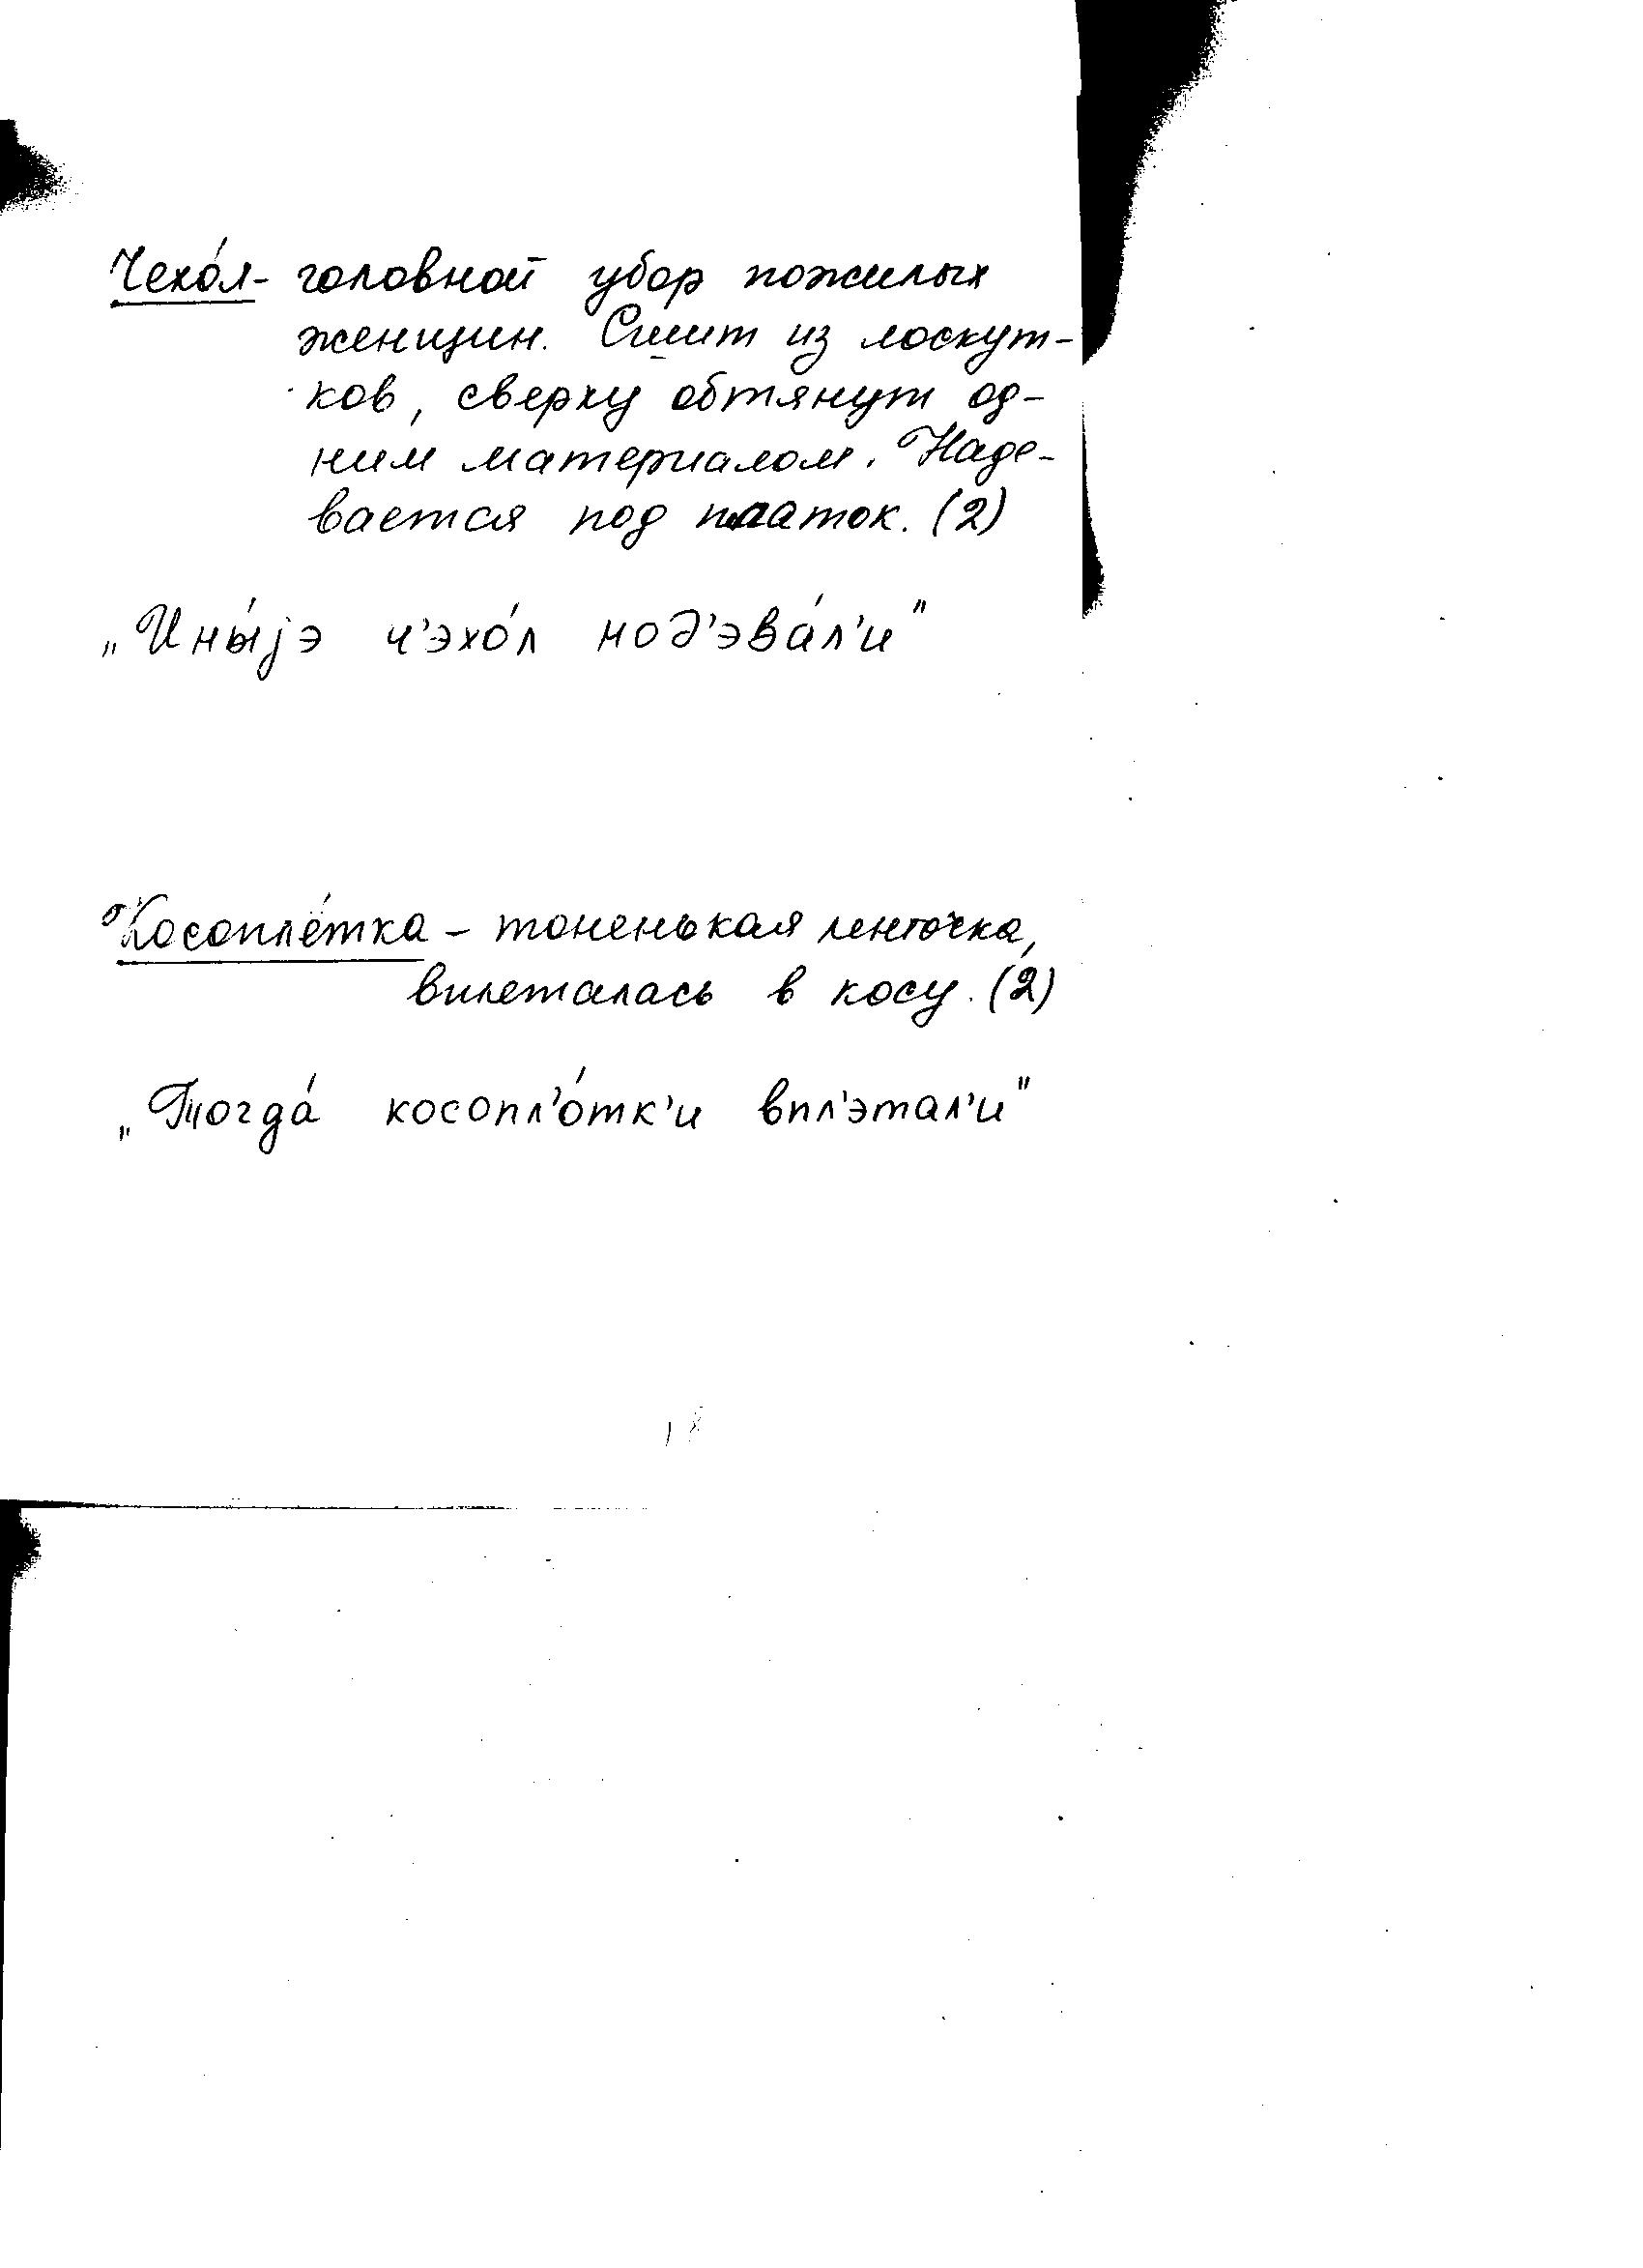 Чехо́л - головной убор пожилых
женщин. Сшит из лоскут-
ков, сверху обтянут од-
ним материалом. Наде-
вается под платок. (2)
„Ины́jэ ч'эхо́л нод'эва́л'и"
Косоплётка – тоненькая ленточка,
вплеталась в косу. (2)
„Тогда́ косопл'о́тк'и впл'этал'и"